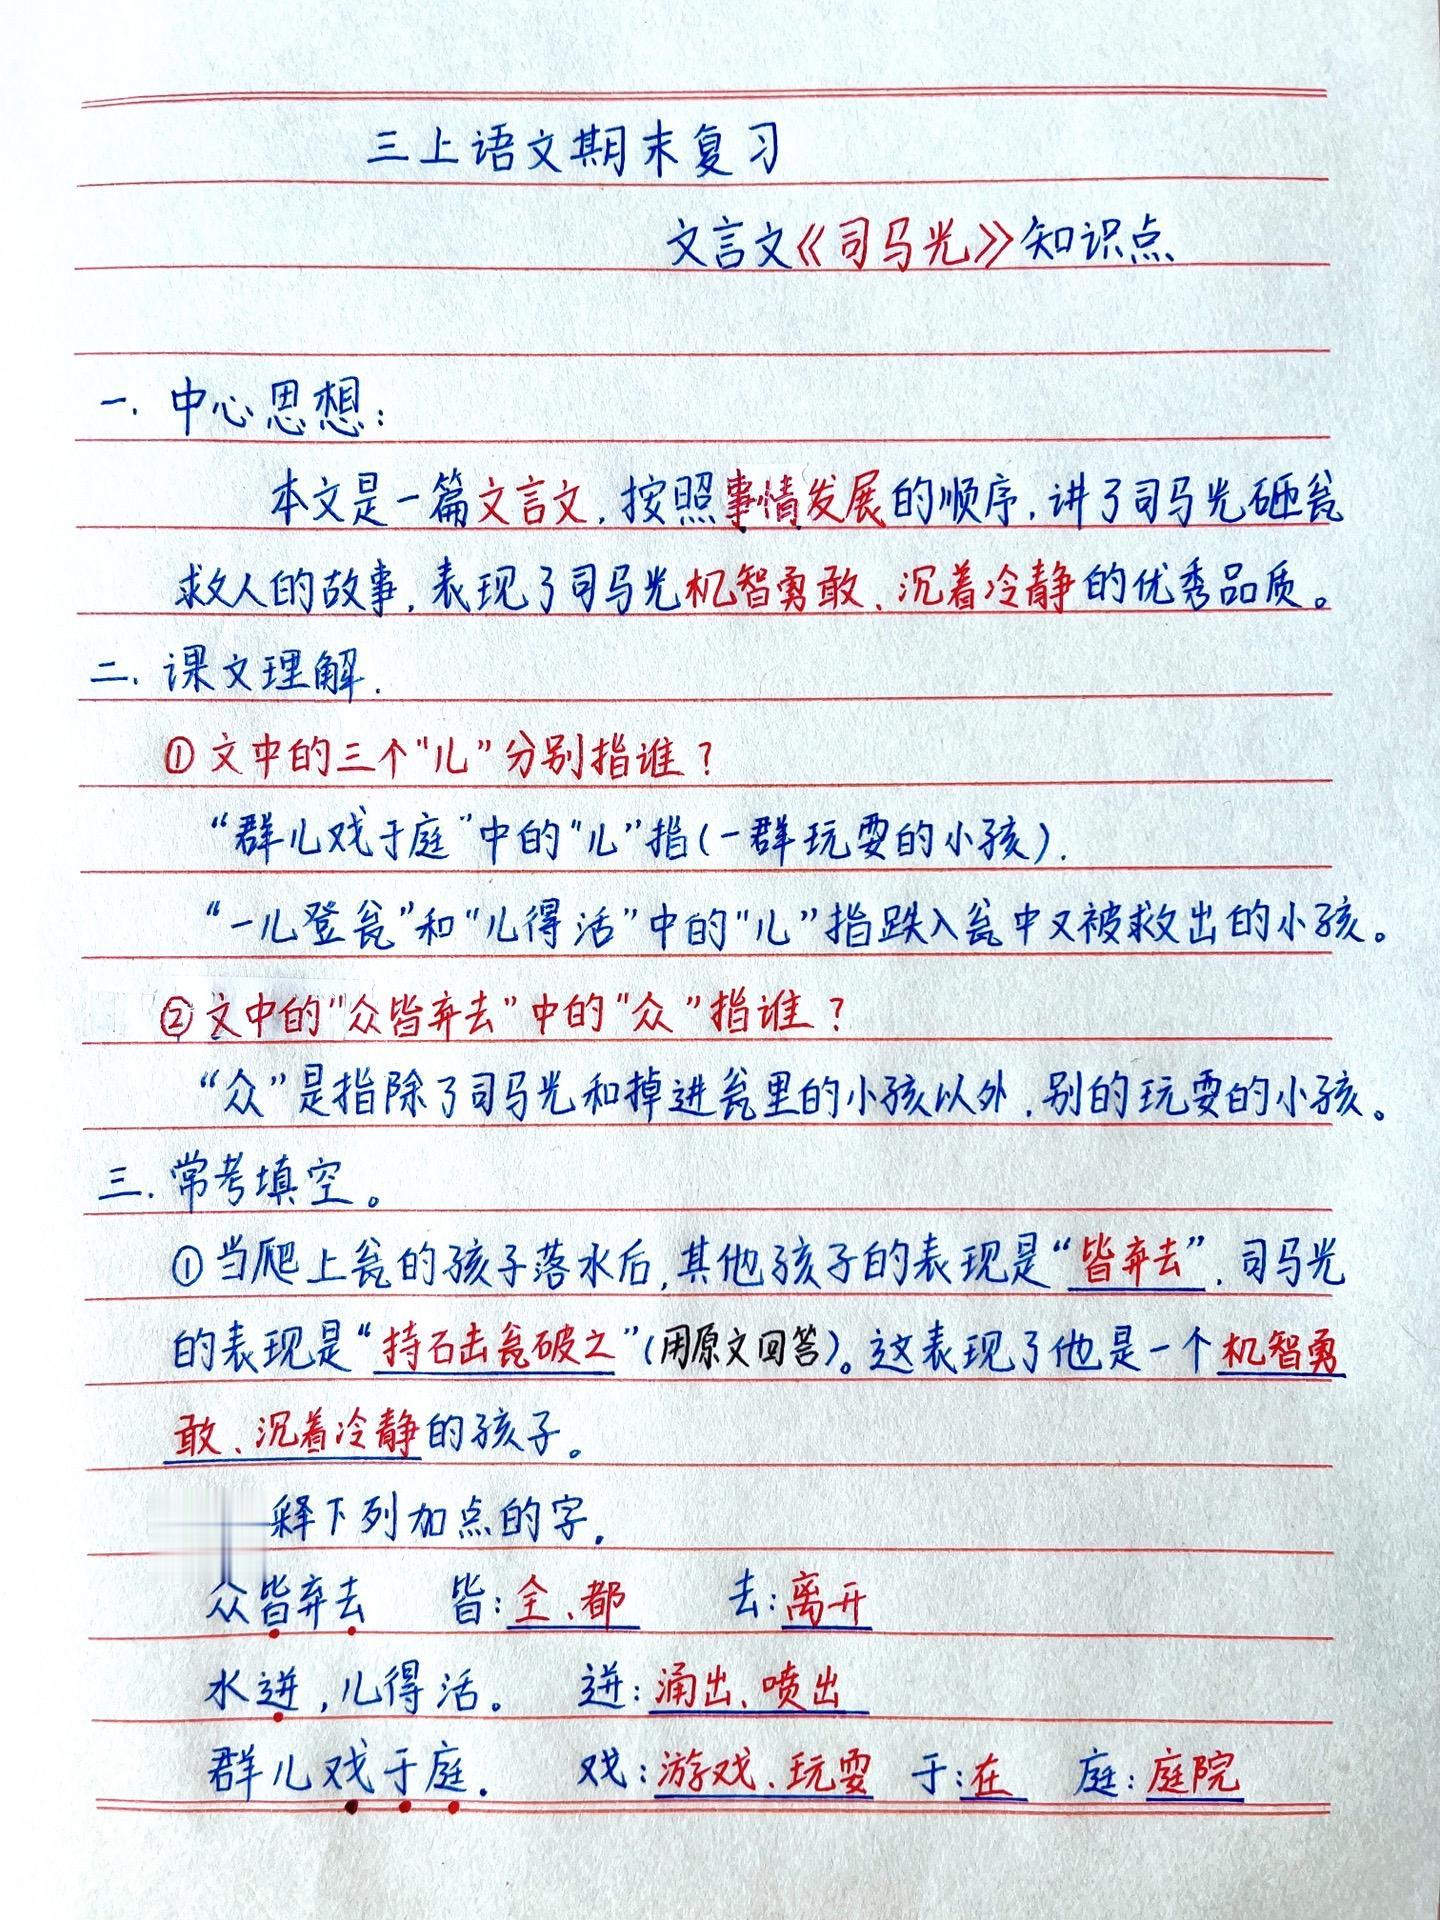 三上语文期末复习
文言文《司马光》知识点
一. 中心思想：
本文是一篇文言文，按照事情发展的顺序，讲了司马光砸瓮
救人的故事，表现了司马光机智勇敢、沉着冷静的优秀品质。
二. 课文理解.
①文中的三个"儿"分别指谁？
"群儿戏于庭"中的"儿"指(一群玩耍的小孩).
"一儿登瓮"和"儿得活"中的"儿"指跌入瓮中又被救出的小孩。
②文中的"众皆弃去"中的"众"指谁？
"众"是指除了司马光和掉进瓮里的小孩以外，别的玩耍的小孩。
三. 常考填空。
①当爬上瓮的孩子落水后，其他孩子的表现是"皆弃去"，司马光
的表现是"持石击瓮破之"(用原文回答)。这表现了他是一个机智勇
敢、沉着冷静的孩子。
释下列加点的字.
众皆弃去 皆：全、都 去：离开
水迸，儿得活。 迸：涌出、喷出
群儿戏于庭. 戏：游戏、玩耍 于：在 庭：庭院